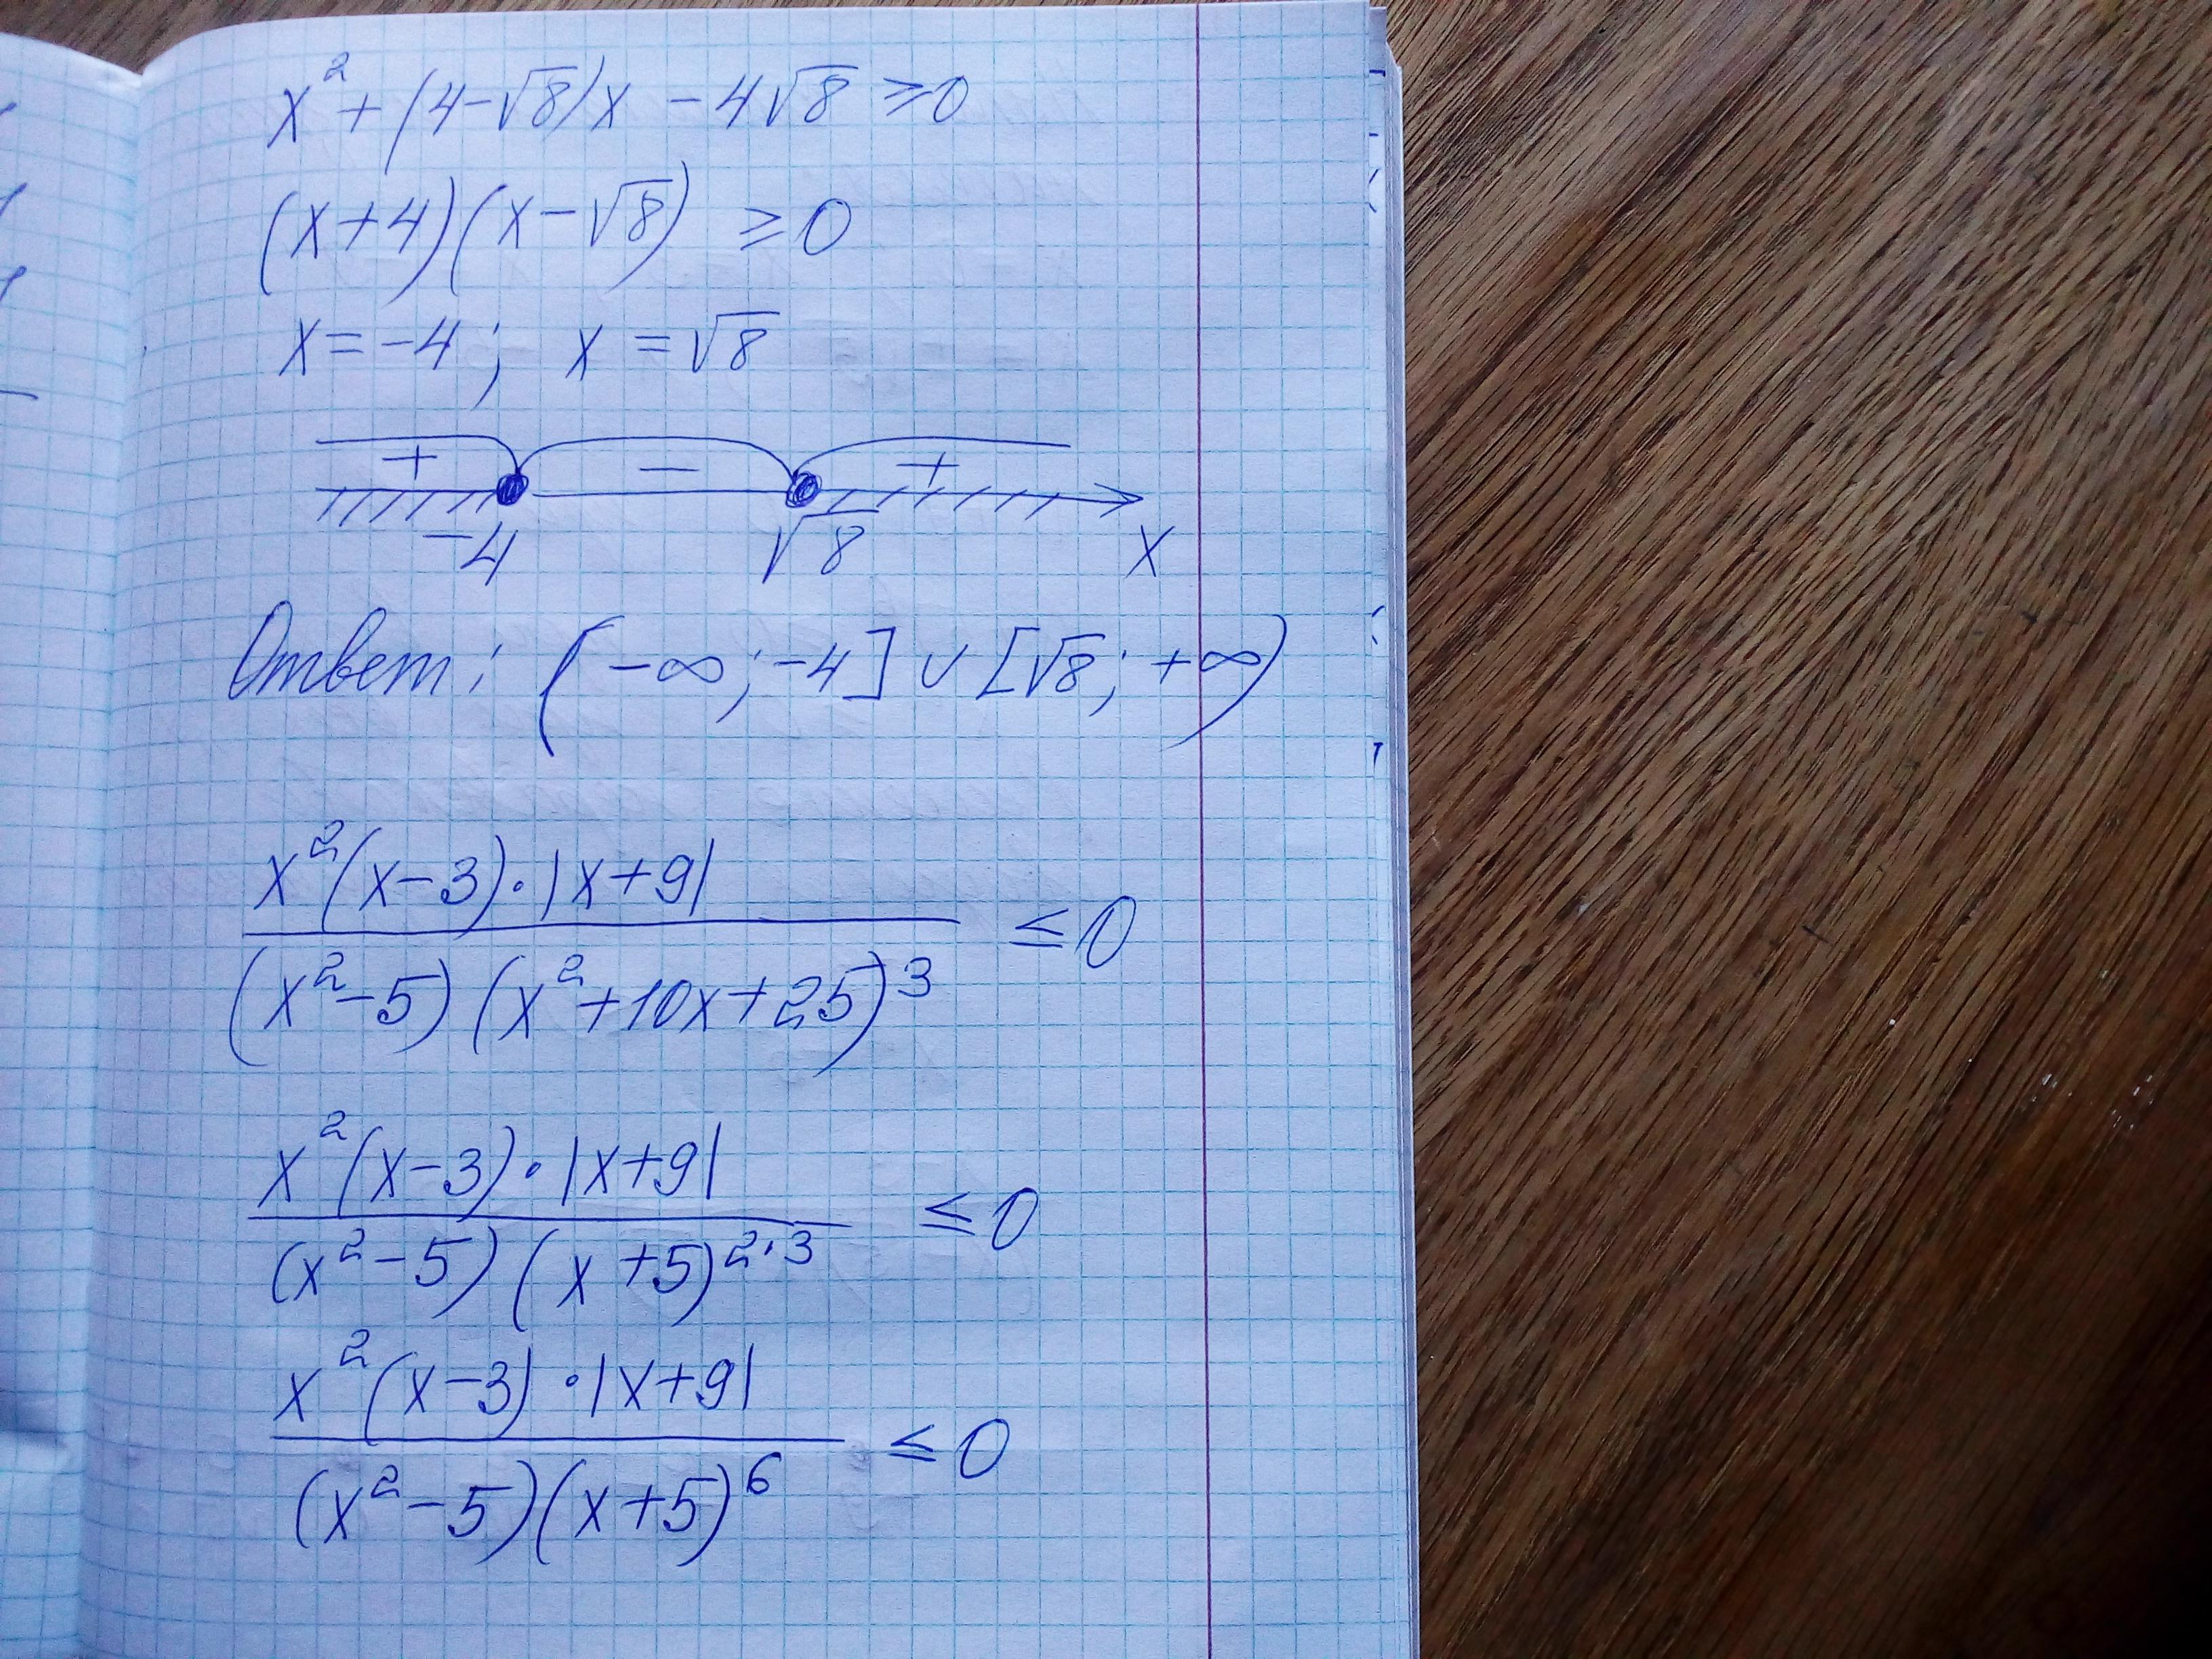 x² + (4-√8)x - 4√8 ≥ 0
(x+4)(x-√8) ≥ 0
x = -4; x = √8
+ - +
-4 √8 x
Ответ: (-∞; -4] ∪ [√8; +∞)
x²(x-3)·|x+9|
(x²-5)(x²+10x+25)³ ≤ 0
x²(x-3)·|x+9|
(x²-5)(x+5)²·³ ≤ 0
x²(x-3)·|x+9|
(x²-5)(x+5)⁶ ≤ 0